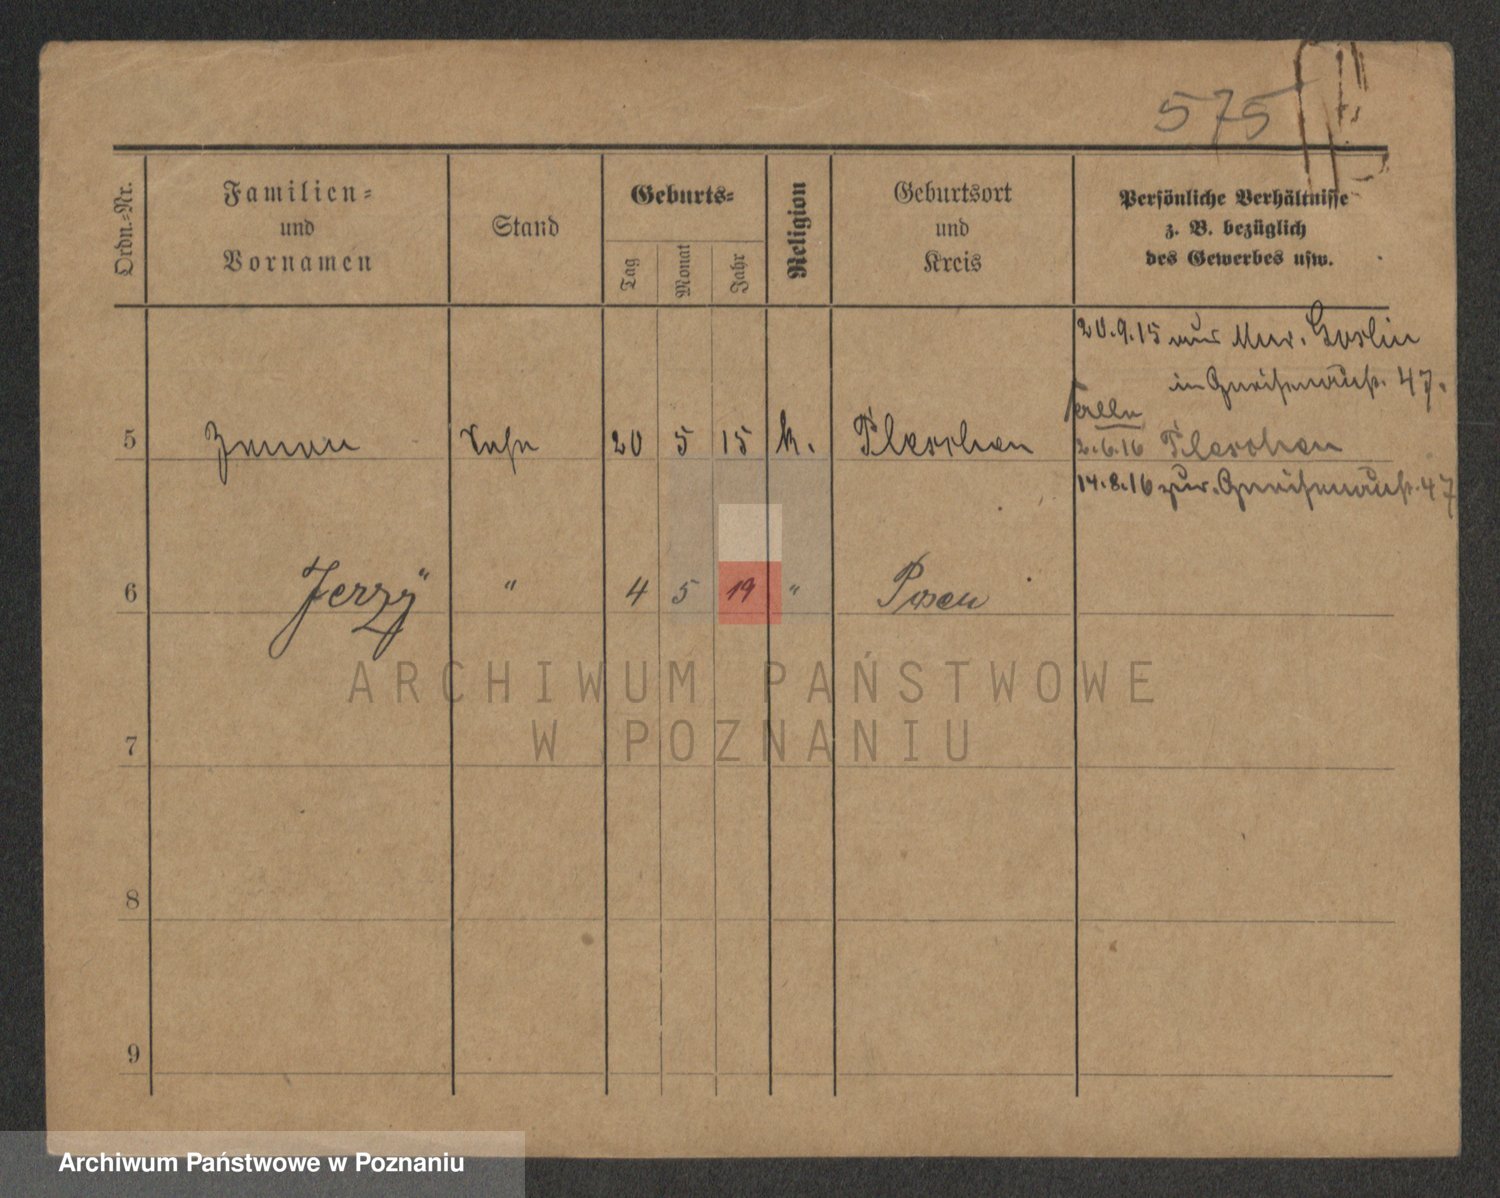 575
Ordn.=Nr.
Familien=
und
Vornamen
Stand
Geburts=
Tag
Monat
Jahr
Religion
Geburtsort
und
Kreis
Persönliche Verhältnisse
z. B. bezüglich
des Gewerbes usw.
20.9.15 aus Mur. Goslin
in Gneisenaustr. 47.
5 Zenon Sohn 20 5 15 k. Pleschen
2.6.16 Pleschen
14.8.16 zur. Gneisenaustr. 47
6 Jerzy " " 4 5 19 " Posen
7
8
9
ARCHIWUM PAŃSTWOWE
W POZNANIU
Archiwum Państwowe w Poznaniu